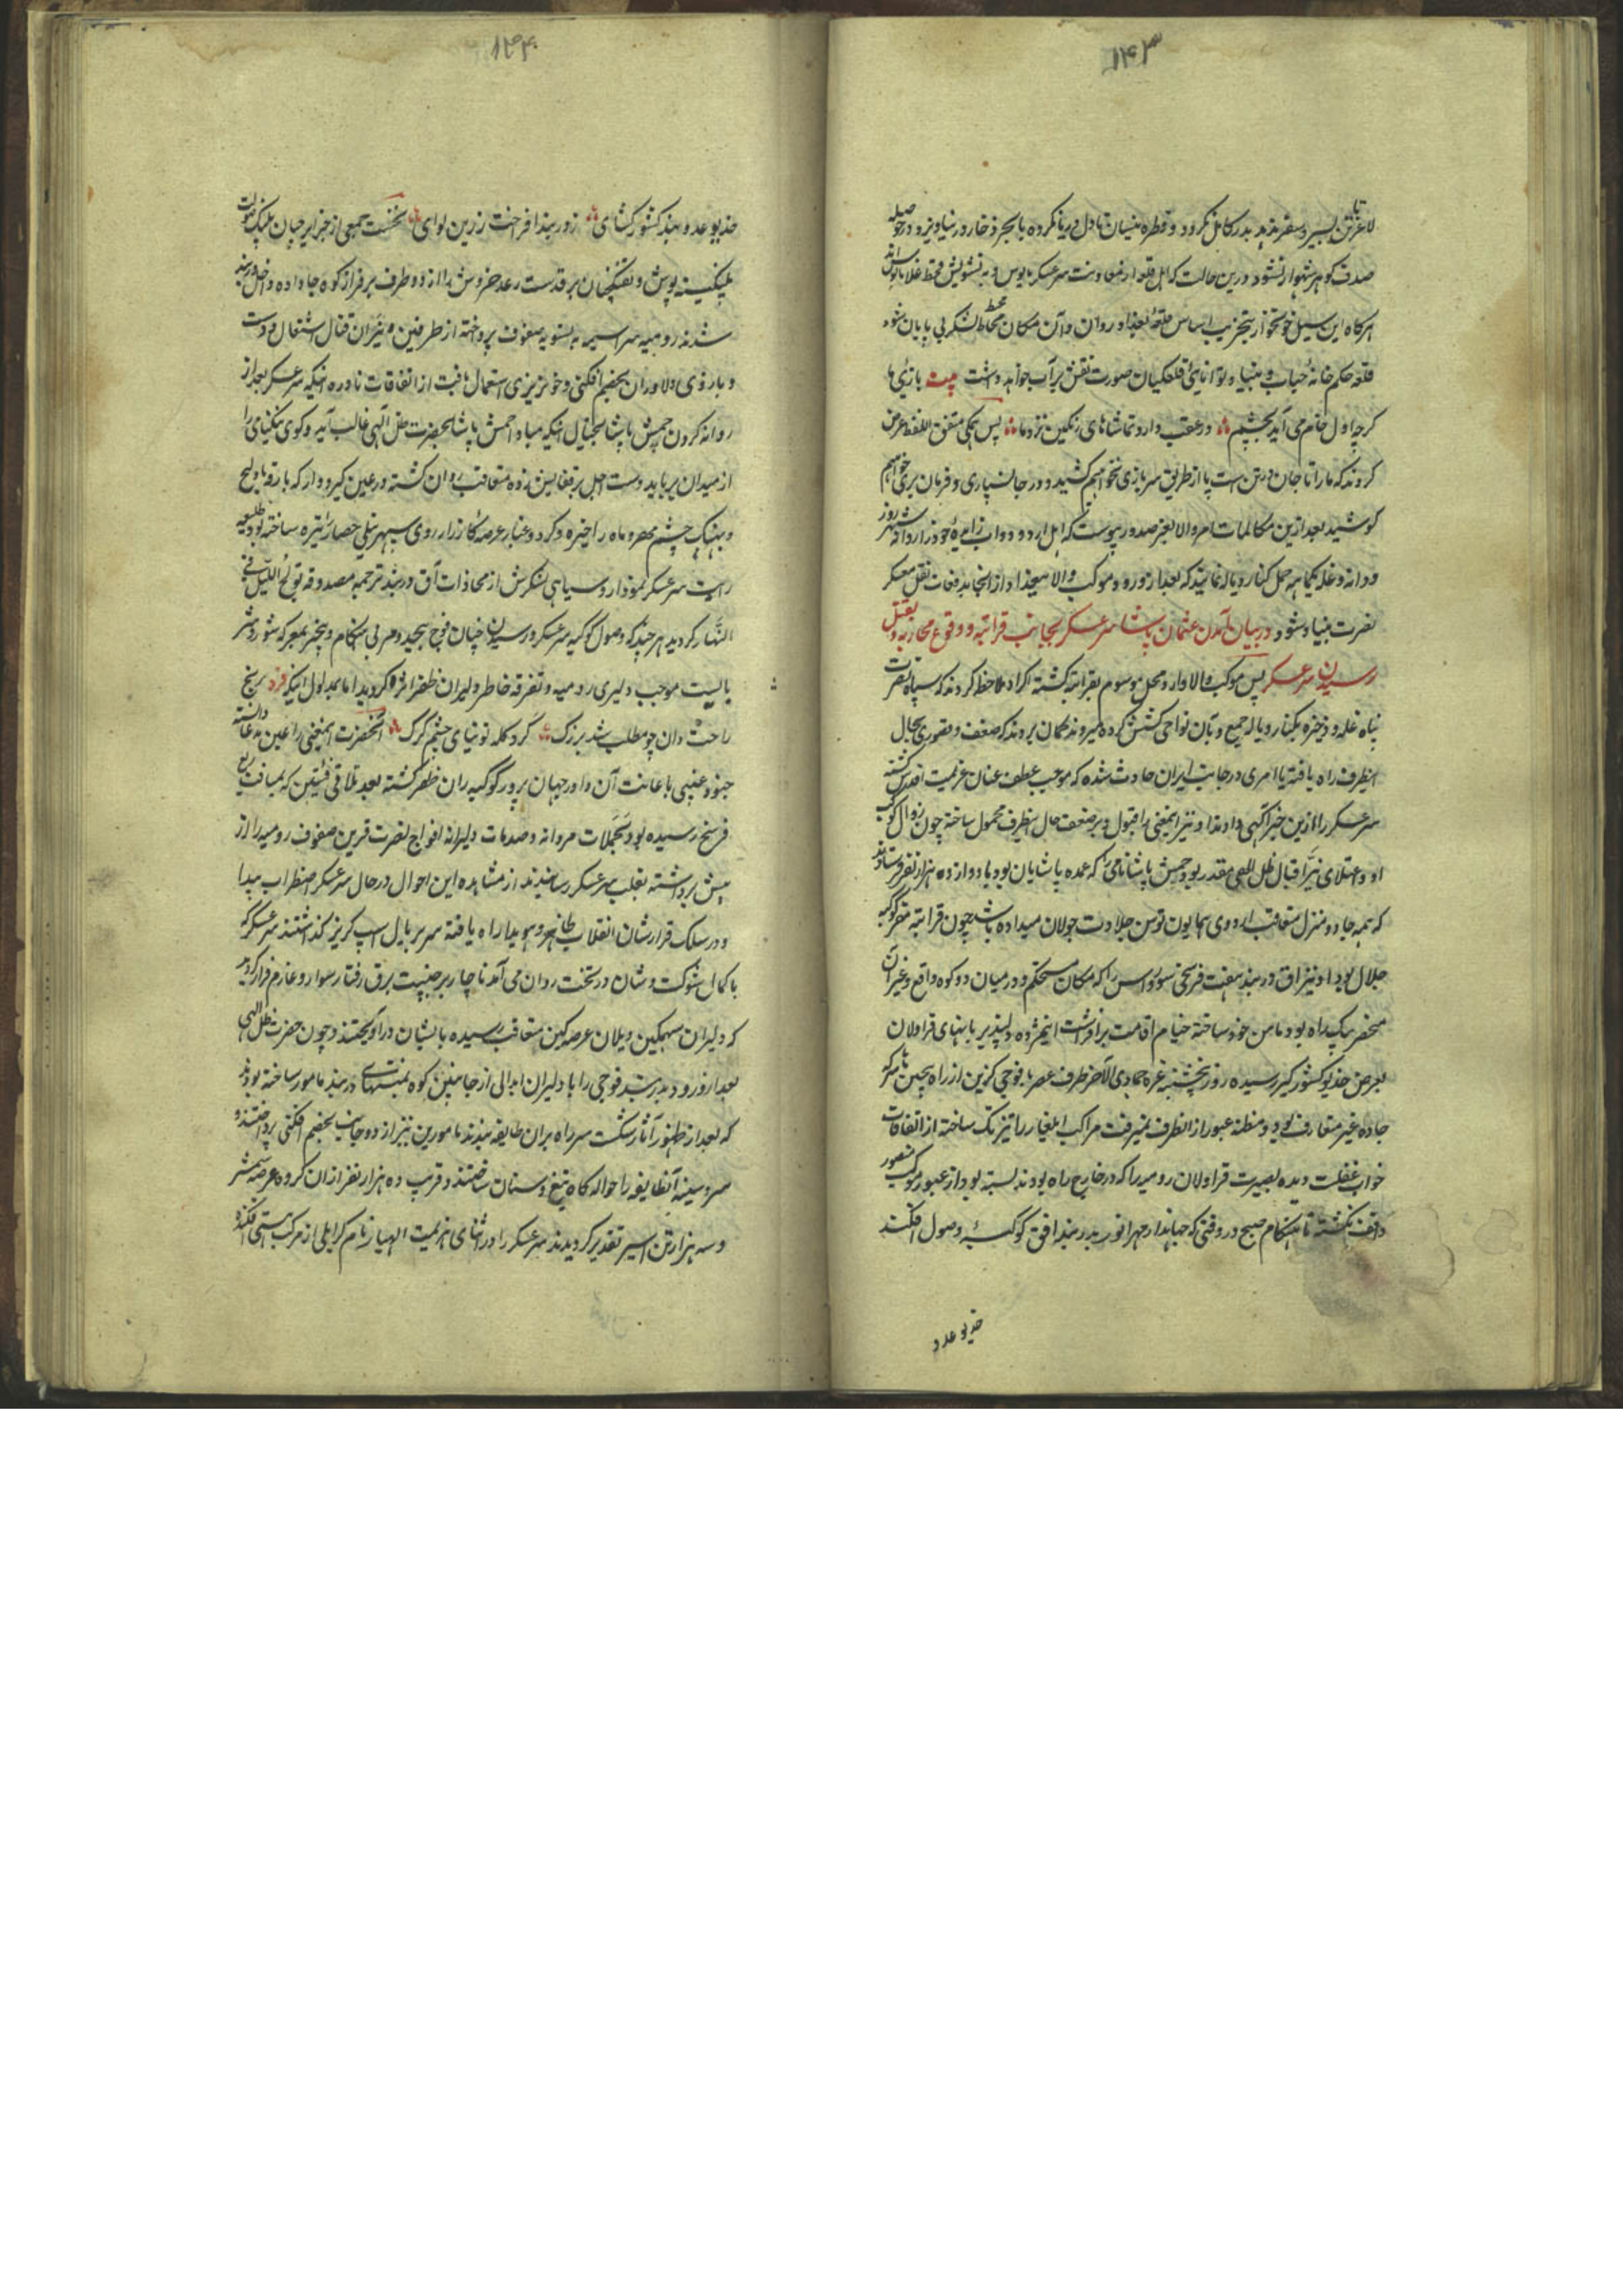 ۱۴۳
لاغر تن بسیر و سفر ننهد بدر کامل نگردد و قطره نیسان تا دل دریا نکرده با بحر زخار در نیاویزد در حوصله
صدف کوهر شهوار نشود درین حالت که اهل قلعه از معاونت سرعسکر مایوس و به تشویش قحط غلا مانوس اند
هرکاه این سیل خونخوار بتخریب اساس قلعه بغداد روان و آن مکان محاط لشکر بی پایان شود
قلعه حکم خانهٔ حباب و بنیاد توانائی قلعکیان صورت نقش بر آب خواهد داشت بیت بازیٔ ما
کرچه اول خام می آید بچشم در عقب دارد تماشاهای رنکین نزد ما پس همکی متفق اللفظ عرض
کردند که ما را تا جان در تن است پا از طریق سربازی نخواهیم کشید و در جانسپاری و فرمان بری خواهیم
کوشید بعد ازین مکالمات امر والا بعز صدور پیوست که اهل اردو دواب زاید خود را روانه شهر زور
و دانه و غله یکماهه حمل کنار دیاله نمایند که بعد از ورود موکب والا بعجذا از انجا بدفعات نقل معسکر
نصرت بنیاد شود در بیان آمدن عثمان پاشا سرعسکر بجانب قراتپه و وقوع محاربه و بقتل
رسیدن سرعسکر پس موکب والا وارد محل موسوم بقراتپه کشته اکراد ملاحظه کردند که سپاه نصرت
پناه غله و ذخیره بکنار دیاله جمع و بآن نواحی کشش کرده میروند کمان بردند که ضعف و قصوری بحال
اینطرف راه یافته یا امری در جانب ایران حادث شده که موجب عطف عنان عزیمت اقدس کشته
سرعسکر را ازین خبر آکهی دادند او نیز اینمعنی را قبول و بر ضعف حال اینطرف محمول ساخته چون زوال کوکب
او و اعتلای نیر اقبال ظل اللهی مقدر بود حمش پاشا نامی که عمده پاشایان بود با دوازده هزار نفر فرستادند
که همه جا دو منزل متعاقب اردوی همایون توسن جلادت جولان میداده باشد چون قراتپه مقر کوکبه
جلال بود او نیز آق دربند هفت فرسخی سورداس را که مکان مستحکم و در میان دو کوه واقع و غیر آن
منحصر بیک راه بود مامن خود ساخته خیام اقامت برافراشت این مژده دلپذیر بانهای قراولان
بعرض خدیو کشورکیر رسیده روز پنجشنبه غره جمادی الآخر طرف عصر با فوجی کزین از راه پیچین تا سر که
جاده غیر متعارف بود و مظنه عبور از انطرف نمیرفت مراکب ایلغار را تیز تک ساخته از اتفاقات
خواب غفلت دیده بصیرت قراولان رومیه را که در خارج راه بودند بسته بود از عبور موکب منصور
واقف نکشته تا هنکام صبح در وقتی که جهاندار مهر انور بدربند افق کوکبهٔ وصول افکند
خدیو عدو
۱۴۴
خدیو عدو بند کشور کشای زدر بند افراخت زرین لوای نخست جمعی از جزایرچیان پلنک صولت
پلنکینه پوش و تفنکچیان برق دست رعد خروش را از دو طرف بر فراز کوه جا داده داخل دربند
شدند رومیه سراسیمه به تسویه صفوف پرداخته از طرفین نیران قتال اشتعال و دست
و بازوی دلاوران بخصم افکنی و خونریزی استعمال یافت از اتفاقات نادره اینکه سرعسکر بعد از
روانه کردن حمش پاشا بخیال اینکه مبادا حمش پاشا بحضرت ظل الهی غالب آید و کوی نیکنامی را
از میدان برباید دست اجل بر قفایش زده متعاقب روان کشته در عین کیرودار که بارقه رماح
و نیزک چشم مهر و ماه را خیره و کرد و غبار عرصه کارزار روی سپهر نیلی حصار را تیره ساخته بود طلیعه
رایت سرعسکر نمودار و سیاهی لشکرش از محاذات آق دربند ترجمه مصدوقه تولج اللیل فی
النهار کردید هر چند که وصول کوکبه سرعسکر و رسیدن چنان فوج بیحد و مر بی هنکام و بیخبر بمعرکه شور و شر
بایست موجب دلیری رومیه و تفرقه خاطر دلیران ظفر اثر کردید اما بمدلول اینکه فرد رنج
راحت دان چو مطلب شد بزرک کرد کله توتیای چشم کرک آنحضرت اینمعنی را عین مدعا دانسته
جنود غیبی باعانت آن داور جهان پرور کوکبه ران ظفر کشته بعد تلاقی فئتین که بمسافت ربع
فرسخ رسیده بود بحملات مردانه و صدمات دلیرانه افواج نصرت قرین صفوف رومیه را از
پیش برداشته بقلب سرعسکر رسانیدند از مشاهده این احوال در حال سرعسکر اضطراب پیدا
و در سلک قرارشان انقلاب ظاهر و هویدا راه یافته سر بر بال اسپ کریز کذاشتند سرعسکر که
با کمال شوکت و شان در تخت روان می آمد ناچار بر جنیبت برق رفتار سوار و عازم فرار کردید
که دلیران سهمکین و یلان عرصه کین متعاقب رسیده بایشان در آویختند و چون حضرت ظل الهی
بعد از ورود بدربند فوجی را با دلیران ابدالی از جانبین کوه بمنتهای دربند مامور ساخته بودند
که بعد از ظهور آثار شکست سر راه بران طایفه بندند مامورین نیز از دو جانب بخصم افکنی پرداختند
سر و سینه آنطایفه را حواله کاه تیغ و سنان ساختند و قریب ده هزار نفر از ان کروه عرضه شمشیر
و سه هزار تن اسیر تقدیر کردیدند سرعسکر را در اثنای هزیمت اللهیار نام کرایلی از مرکب هستی افکنده